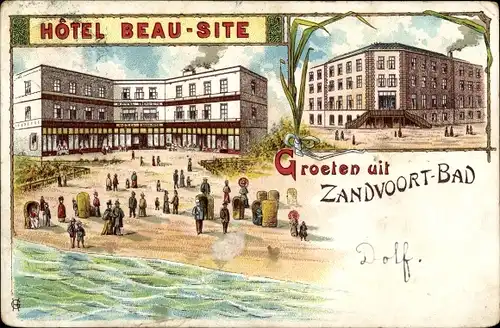 HÔTEL BEAU-SITE
Groeten uit
ZANDVOORT-BAD
Dolf.